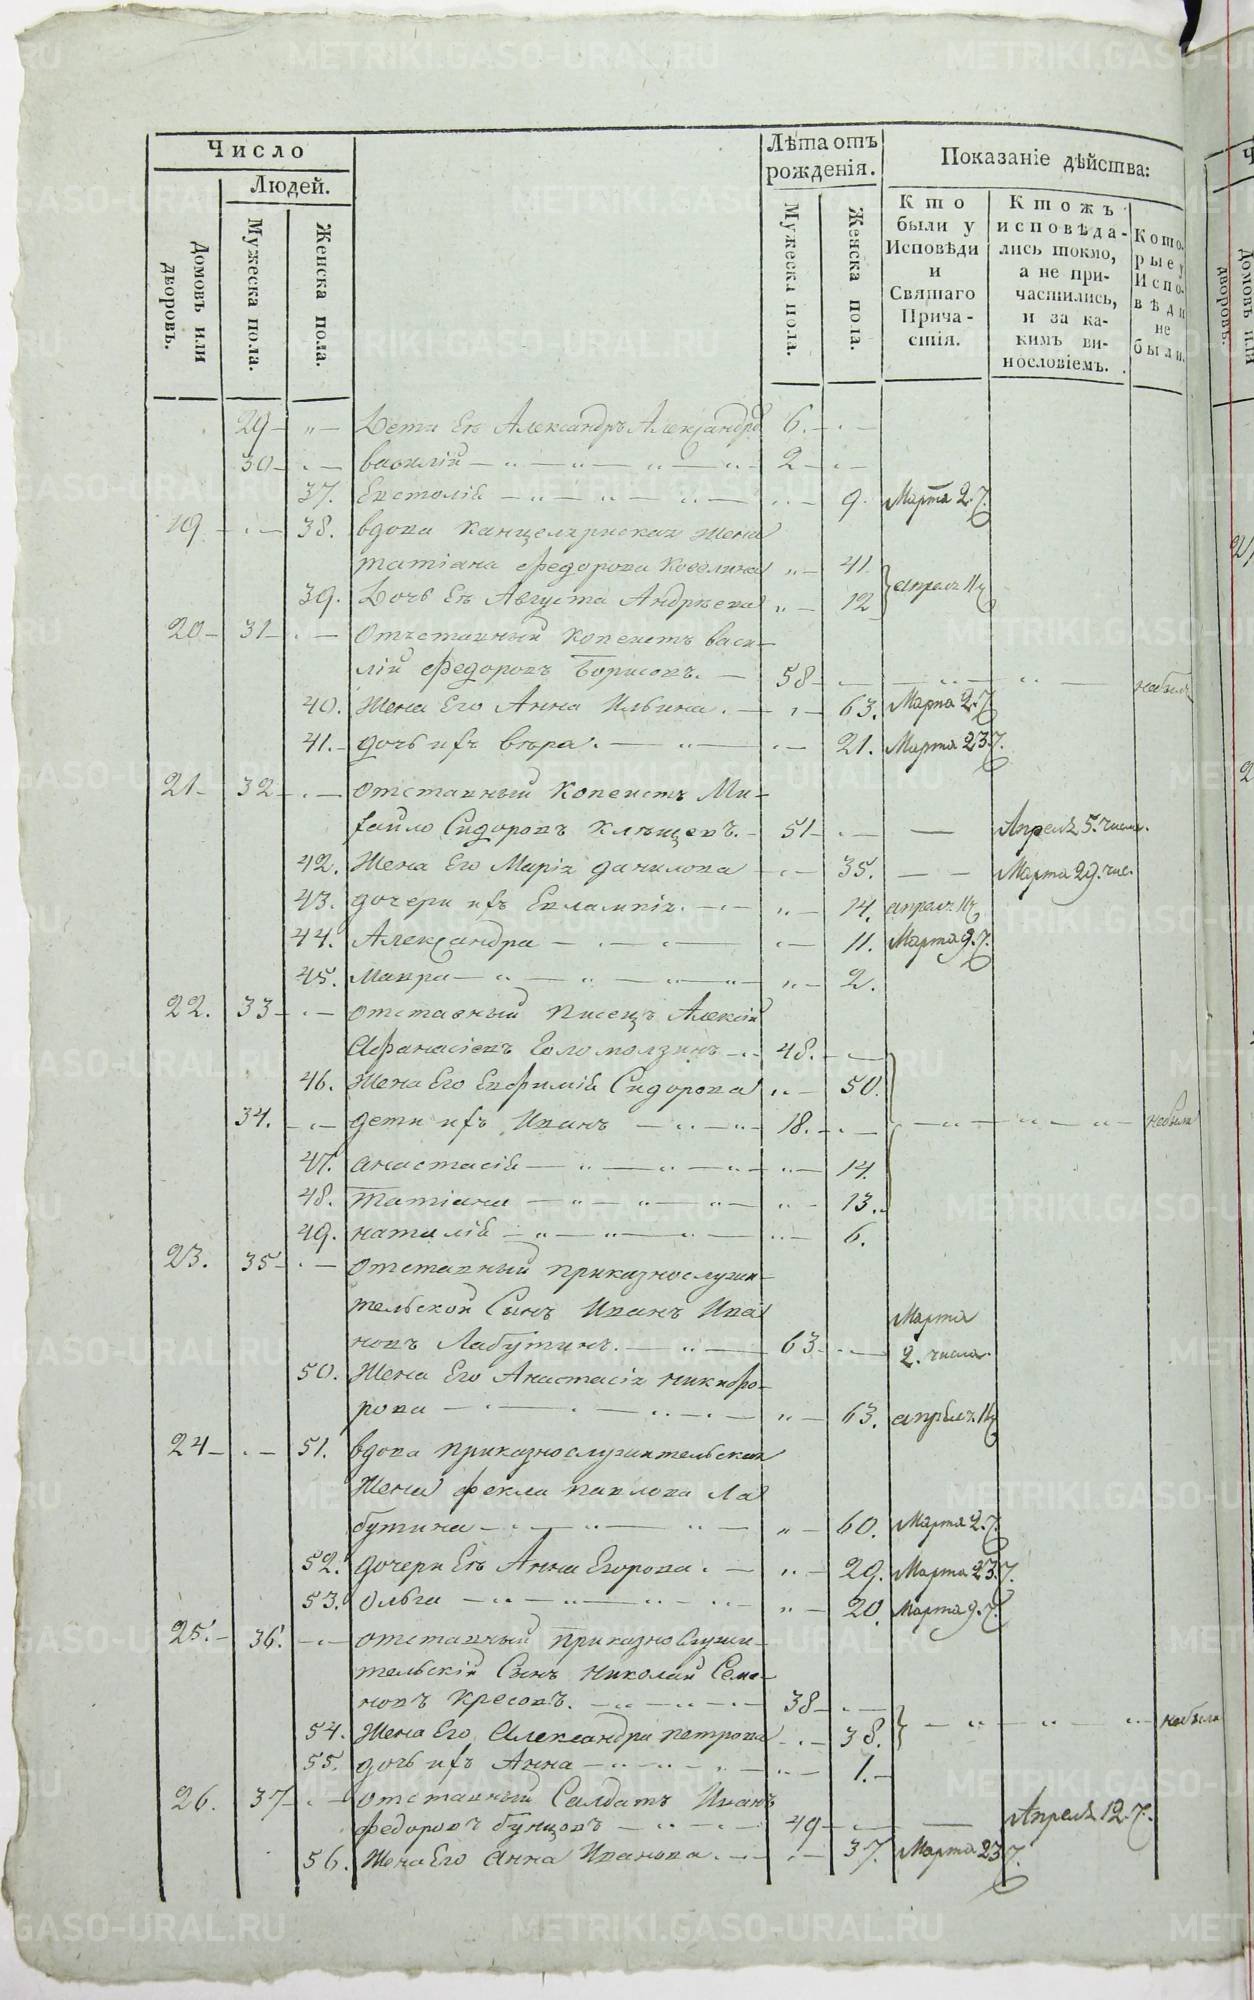 Число
Людей.
Домовъ или дворовъ.
Мужеска пола.
Женска пола.
Лѣта отъ рожденія.
Мужеска пола.
Женска пола.
Показаніе дѣйства:
Кто были у Исповѣди и Святаго Прича-стія.
Ктожъ исповѣда-лись токмо, а не при-частились, и за ка-кимъ ви-нословіемъ.
Кото-рые у Испо-вѣди не были.
29 Дети Ея Александръ Александро 6.
30 василий 2
37. Евстолія 9. Марта 2. ч.
19 38. вдова Канцелярская Жена
татіана Федорова 41
39. Дочь Ея Августа Андреева 12 апреля 11 ч
20 31 Отъставный Копеистъ васи-
лій Федоровъ Борисовъ. 58 небылъ
40. Жена Его Анна Ильина. 63. Марта 2. ч
41. дочь ихъ вѣра. 21. Марта 23 ч.
21 32 отставный Копеистъ Ми-
хайло Сидоровъ Клѣщевъ. 51 Апреля 5. числа.
42. Жена Его Марія данилова 35. Марта 29. чис.
43. дочери ихъ Евлампія. 14. апреля 11 ч
44. Александра 11. Марта 9. ч.
45. Мавра 2.
22. 33 отставный писецъ Алексій
Афанасіевъ Голомолзинъ 48.
46. Жена Его Евфимія Сидорова 50.
34. дети ихъ Иванъ 18. небыли
47. анастасія 14.
48. Татіана 13.
49. наталія 6.
23. 35 отставный приказнослужи-
тельской Сынъ Иванъ Ива
новъ Лабутинъ. 63 Марта 2. числа.
50. Жена Его Анастасія никифо-
рова 63. апреля 11 ч
24 51. вдова приказнослужительская
Жена фекла павлова Ла
бутина 60. Марта 2. ч.
52. дочери Ея Анна Егорова. 29. Марта 23. ч.
53. Ольга 20. Марта 9. ч.
25. 36. отставный приказнослужи-
тельскій Сынъ николай Семе-
новъ Кресовъ. 38
54. Жена Его Александра петрова 38. небыли
55. дочь ихъ Анна 1.
26. 37 отставный Салдатъ Иванъ
федоровъ бунцовъ 49 Апреля 12. ч.
56. Жена Его Анна Иванова. 37. Марта 23 ч.
METRIKI.GASO-URAL.RU